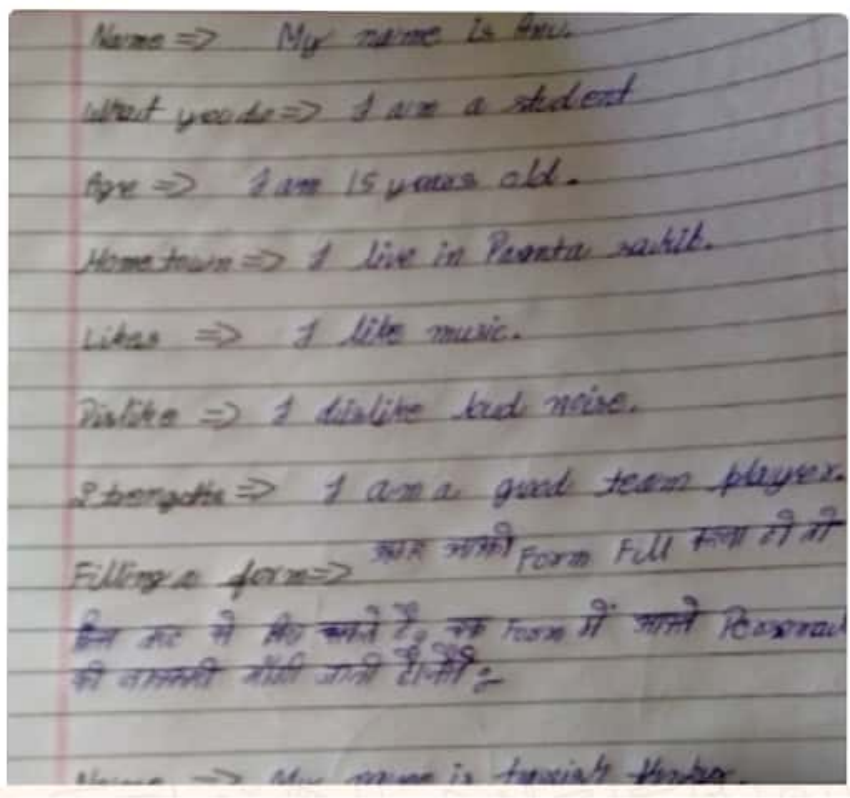 Name => My name is Anu.
What you do => I am a student
Age => I am 15 years old.
Hometown => I live in Paonta sahib.
Likes => I like music.
Dislike => I dislike loud noise.
Strengths => I am a good team player.
Filling a form => अगर आपको Form Fill करना हो तो
में आपसे Personal
की जानकारी माँगी जाती है। जैसे :-
Name => My name is